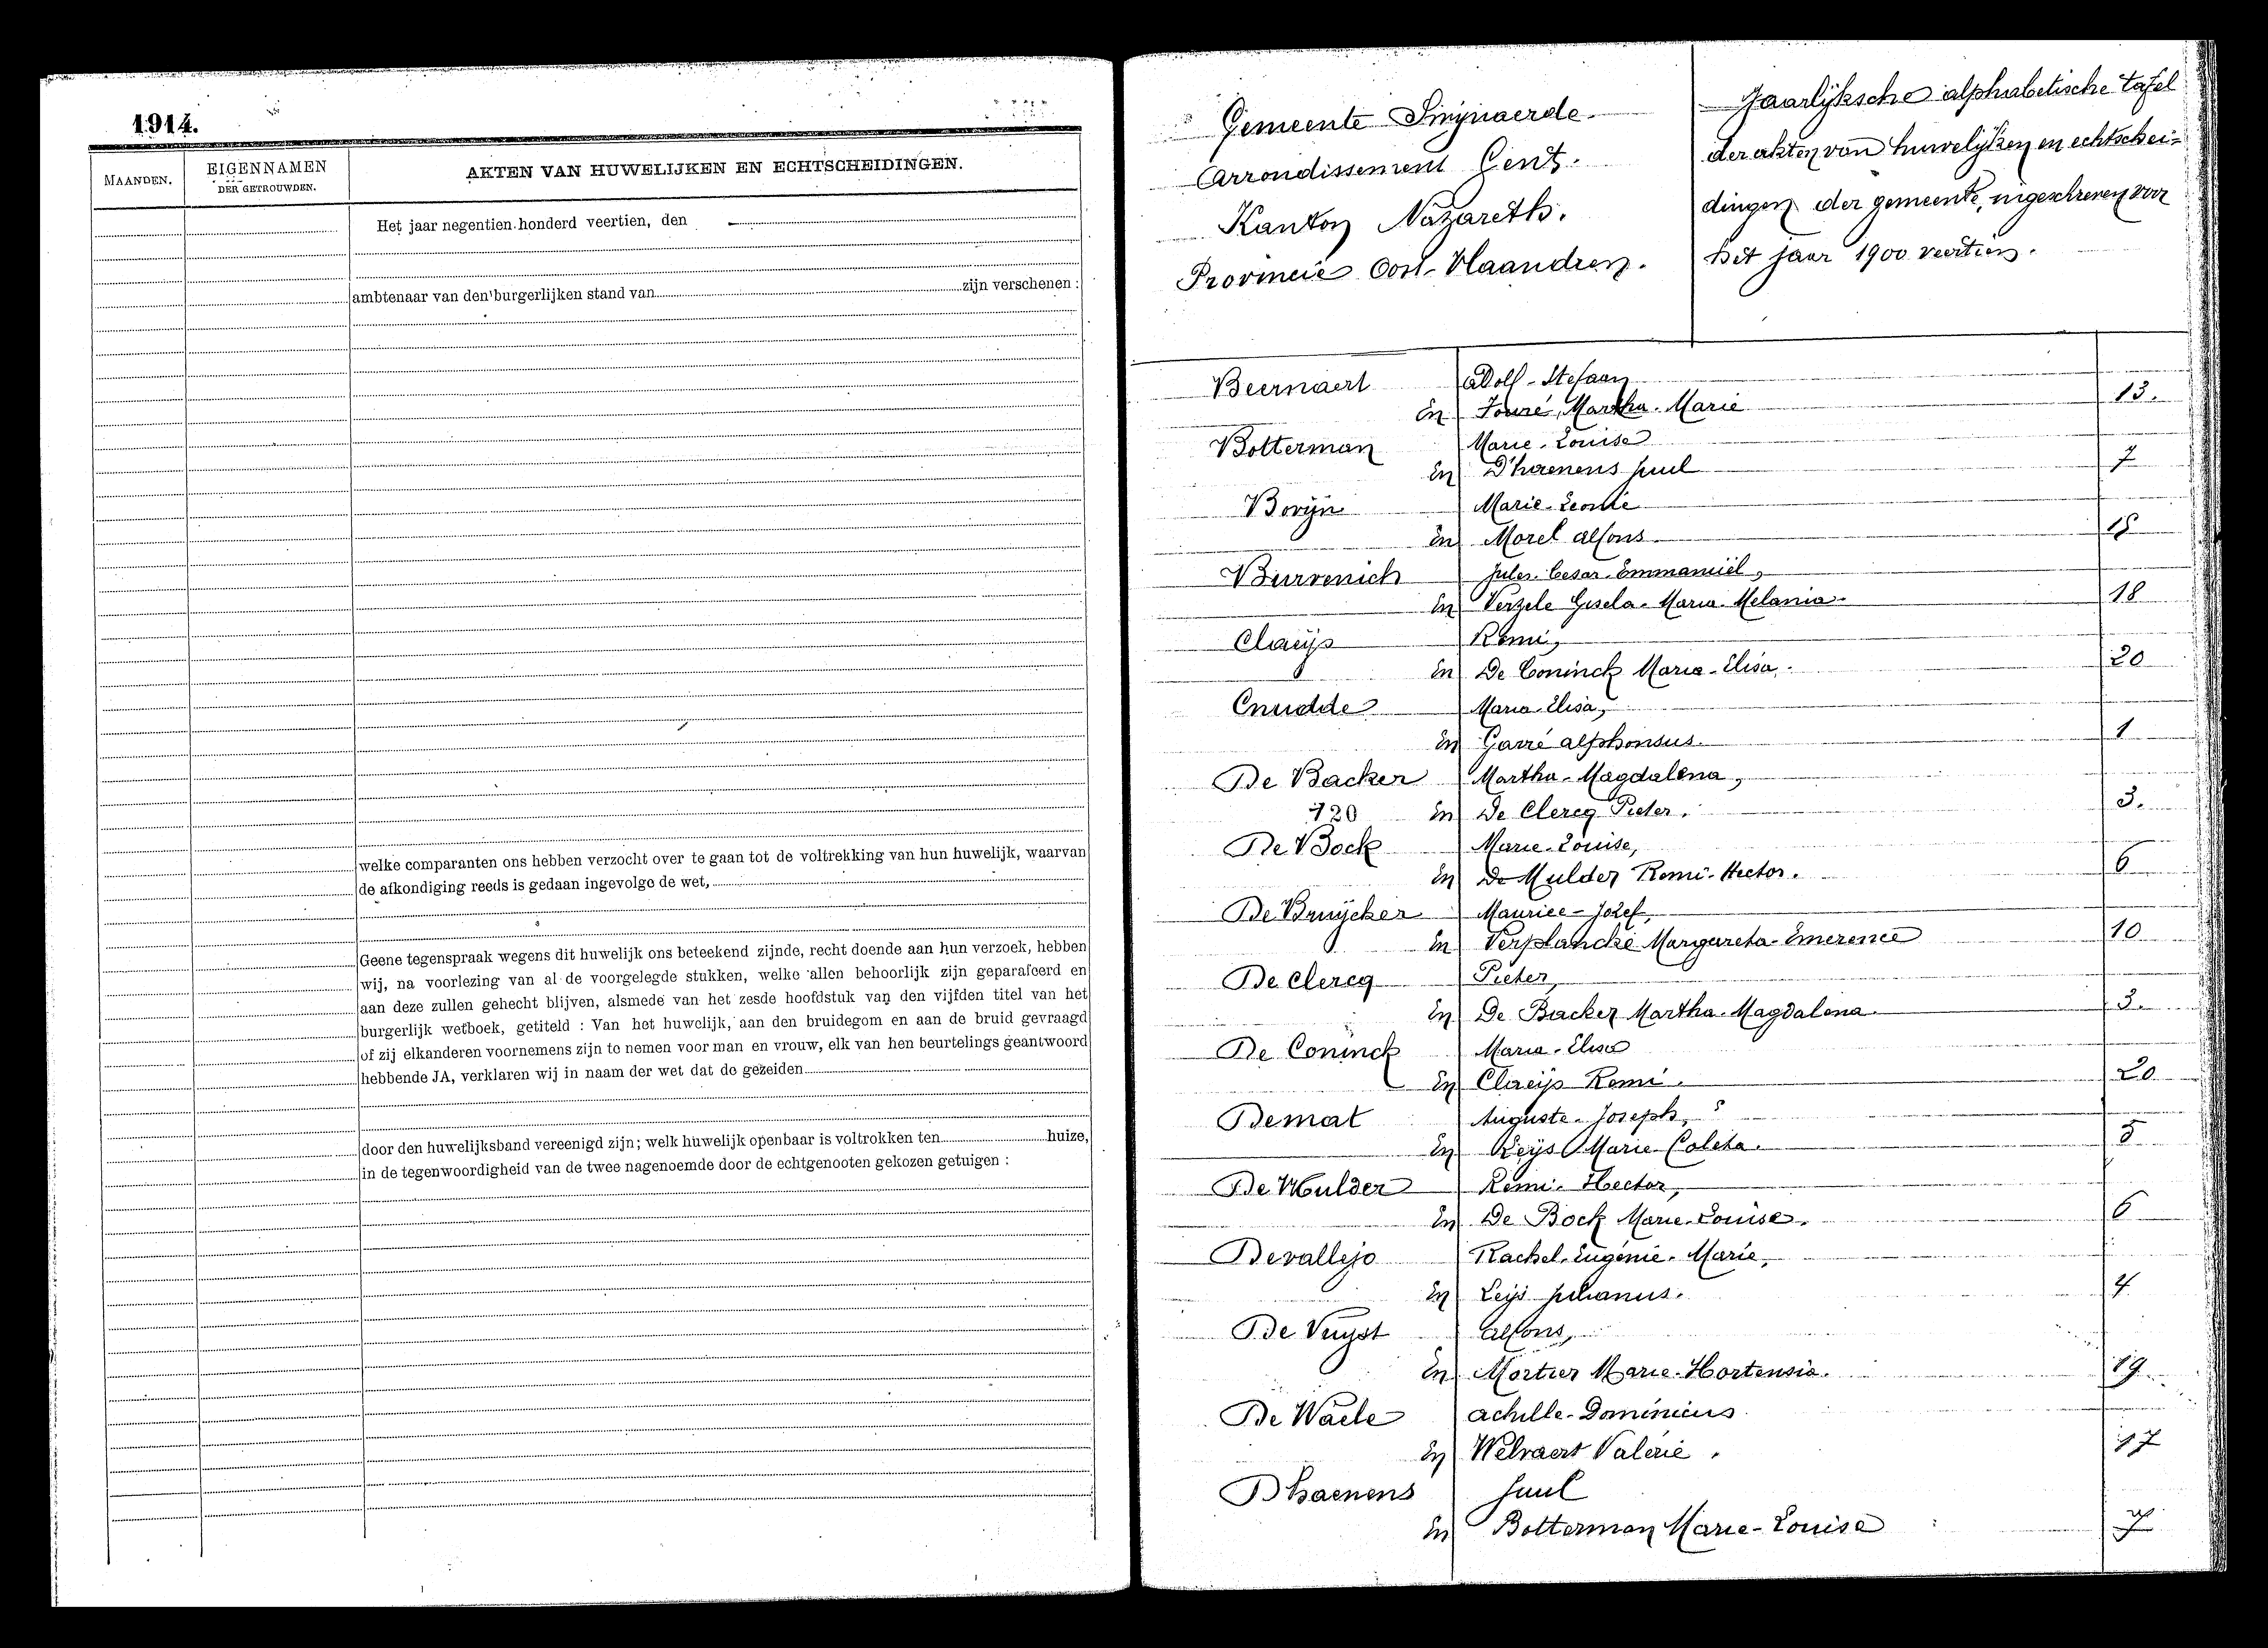 1914.
MAANDEN.
EIGENNAMEN
DER GETROUWDEN.
AKTEN VAN HUWELIJKEN EN ECHTSCHEIDINGEN.
Het jaar negentien honderd veertien, den
ambtenaar van den burgerlijken stand van zijn verschenen :
welke comparanten ons hebben verzocht over te gaan tot de voltrekking van hun huwelijk, waarvan
de afkondiging reeds is gedaan ingevolge de wet,
Geene tegenspraak wegens dit huwelijk ons beteekend zijnde, recht doende aan hun verzoek, hebben
wij, na voorlezing van al de voorgelegde stukken, welke allen behoorlijk zijn geparafeerd en
aan deze zullen gehecht blijven, alsmede van het zesde hoofdstuk van den vijfden titel van het
burgerlijk wetboek, getiteld : Van het huwelijk, aan den bruidegom en aan de bruid gevraagd
of zij elkanderen voornemens zijn te nemen voor man en vrouw, elk van hen beurtelings geantwoord
hebbende JA, verklaren wij in naam der wet dat de gezeiden
door den huwelijksband vereenigd zijn; welk huwelijk openbaar is voltrokken ten huize,
in de tegenwoordigheid van de twee nagenoemde door de echtgenooten gekozen getuigen :
Gemeente Swijnaerde
Arrondissement Gent.
Kanton Nazareth.
Provincie Oost-Vlaandren.
Jaarlijksche alphabetische tafel
der akten van huwelijken en echtschei=
dingen der gemeente, ingeschreven voor
het jaar 1900 veertien.
Beernaert Adolf-Stefaan
En Martha-Marie 13.
Botterman Marie-Louise
En D'haenens Juul 7
Borijn Marie-Leonie
En Morel Alfons 15
Burvenich Jules-Cesar-Emmanuël,
En Verzele Gisela-Maria-Melania 18
Claeijs Remi,
En De Coninck Maria-Elisa. 20
Cnudde Maria-Elisa,
En Garré Alphonsus. 1
De Backer Martha-Magdalena,
120 En De Clercq Pieter. 3.
De Bock Marie-Louise,
En De Mulder Remi-Hector. 6
De Bruijcker Maurice-Jozef,
En Verplancke Margareta-Emerence 10
De Clercq Pieter,
En De Backer Martha-Magdalena 3.
De Coninck Maria-Elisa
En Claeijs Remi. 20
Demat Auguste-Joseph,
En Reijs Marie Coleta. 5
De Mulder Remi-Hector,
En De Bock Marie-Louise. 6
Devallejo Rachel-Eugénie-Marie,
En Leijs Julianus. 4
De Vuyst Alfons,
En Mortier Marie-Hortensia. 19
De Waele Achille-Dominicus
En Welvaert Valérie. 17
Dhaenens Juul
En Botterman Marie-Louise 7